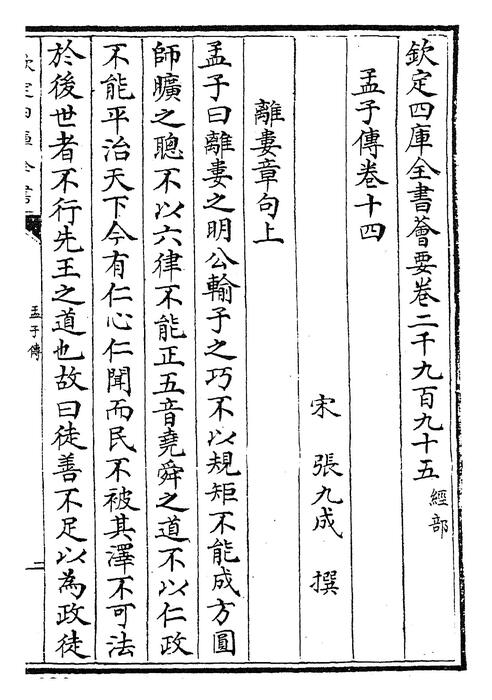 欽定四庫全書薈要卷二千九百九十五 經部
孟子傳卷十四
宋 張九成 撰
離婁章句上
孟子曰離婁之明公輸子之巧不以規矩不能成方圓
師曠之聰不以六律不能正五音堯舜之道不以仁政
不能平治天下今有仁心仁聞而民不被其澤不可法
於後世者不行先王之道也故曰徒善不足以為政徒
欽定四庫全書
孟子傳